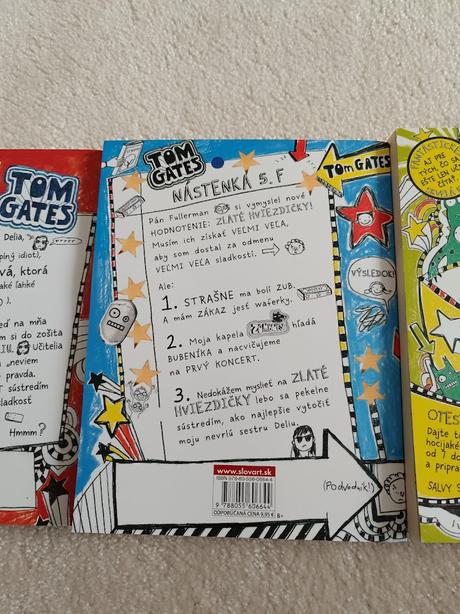 TOM
GATES
Delia,
plný idiot),
vá, ktorá
aké ľahké
).
eď na mňa
m si do zošita
Učitelia
neviem
pravda.
sústredím
sladkosť
Hmmm?
TOM
GATES
TOM GATES
NÁSTENKA 5.F
Pán Fullerman si vymyslel nové
HODNOTENIE: ZLATÉ HVIEZDIČKY!
Musím ich získať VEĽMI VEĽA,
aby som dostal za odmenu
VEĽMI VEĽA sladkostí.
Ale:
1. STRAŠNE ma bolí ZUB.
A mám ZÁKAZ jesť waferky.
2. Moja kapela hľadá
BUBENÍKA a nacvičujeme
na PRVÝ KONCERT.
3. Nedokážem myslieť na ZLATÉ
HVIEZDIČKY lebo sa pekelne
sústredím, ako najlepšie vytočiť
moju nevrlú sestru Deliu.
VÝSLEDOK!
(Podvodník!)
www.slovart.sk
ISBN 978-80-556-0664-4
9 788055 606644
ODPORÚČANÁ CENA 9,95 € 8+
FANTASTICKÉ
AJ PRE
TÝCH, ČO SA
EŠTE LEN UČ
ČÍTAŤ
OTES
Dajte t
hocijaké
od 7 do
a pripra
SALVY S